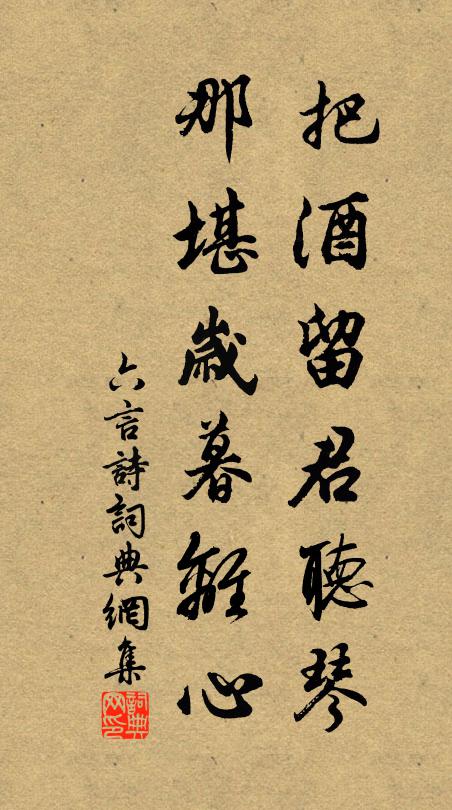 把酒留君聽琴
那堪歲暮離心
六言詩詞典網集
詞典網印